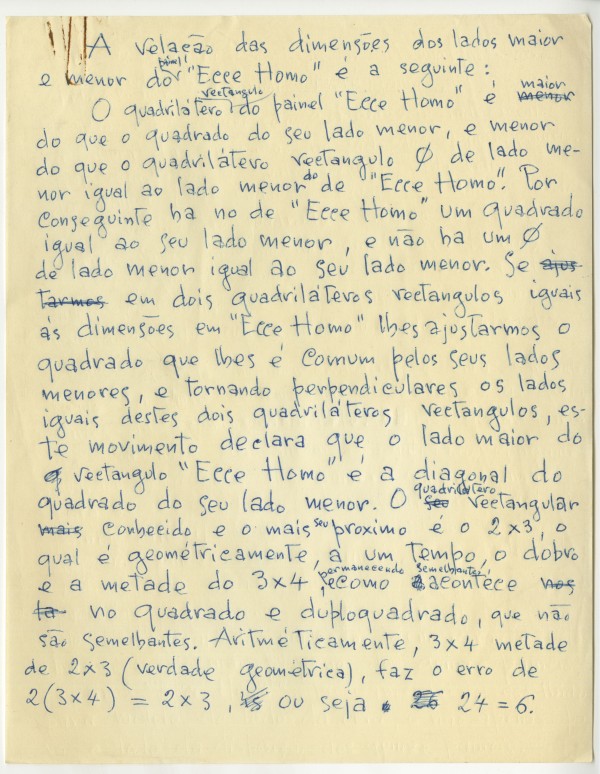 A relação das dimensões dos lados maior
e menor do painel "Ecce Homo" é a seguinte:
O quadrilátero rectangulo do painel "Ecce Homo" é menor maior
do que o quadrado do seu lado menor, e menor
do que o quadrilátero rectangulo Ø de lado me-
nor igual ao lado menor do de "Ecce Homo". Por
conseguinte ha no de "Ecce Homo" um quadrado
igual ao seu lado menor, e não ha um Ø
de lado menor igual ao seu lado menor. Se ajus
tarmos em dois quadriláteros rectangulos iguais
ás dimensões em "Ecce Homo" lhes ajustarmos o
quadrado que lhes é comum pelos seus lados
menores, e tornando perpendiculares os lados
iguais destes dois quadriláteros rectangulos, es-
te movimento declara que o lado maior do
q rectangulo "Ecce Homo" é a diagonal do
quadrado do seu lado menor. O seu quadrilátero rectangular
mais conhecido e o mais seu proximo é o 2×3, o
qual é geométricamente, a um tempo, o dobro
e a metade do 3×4, permanecendo semelhantes, como acontéce nos
ta no quadrado e duploquadrado, que não
são semelhantes. Aritméticamente, 3×4 metade
de 2×3 (verdade geométrica), faz o erro de
2(3×4) = 2×3, ou seja 26 24 = 6.